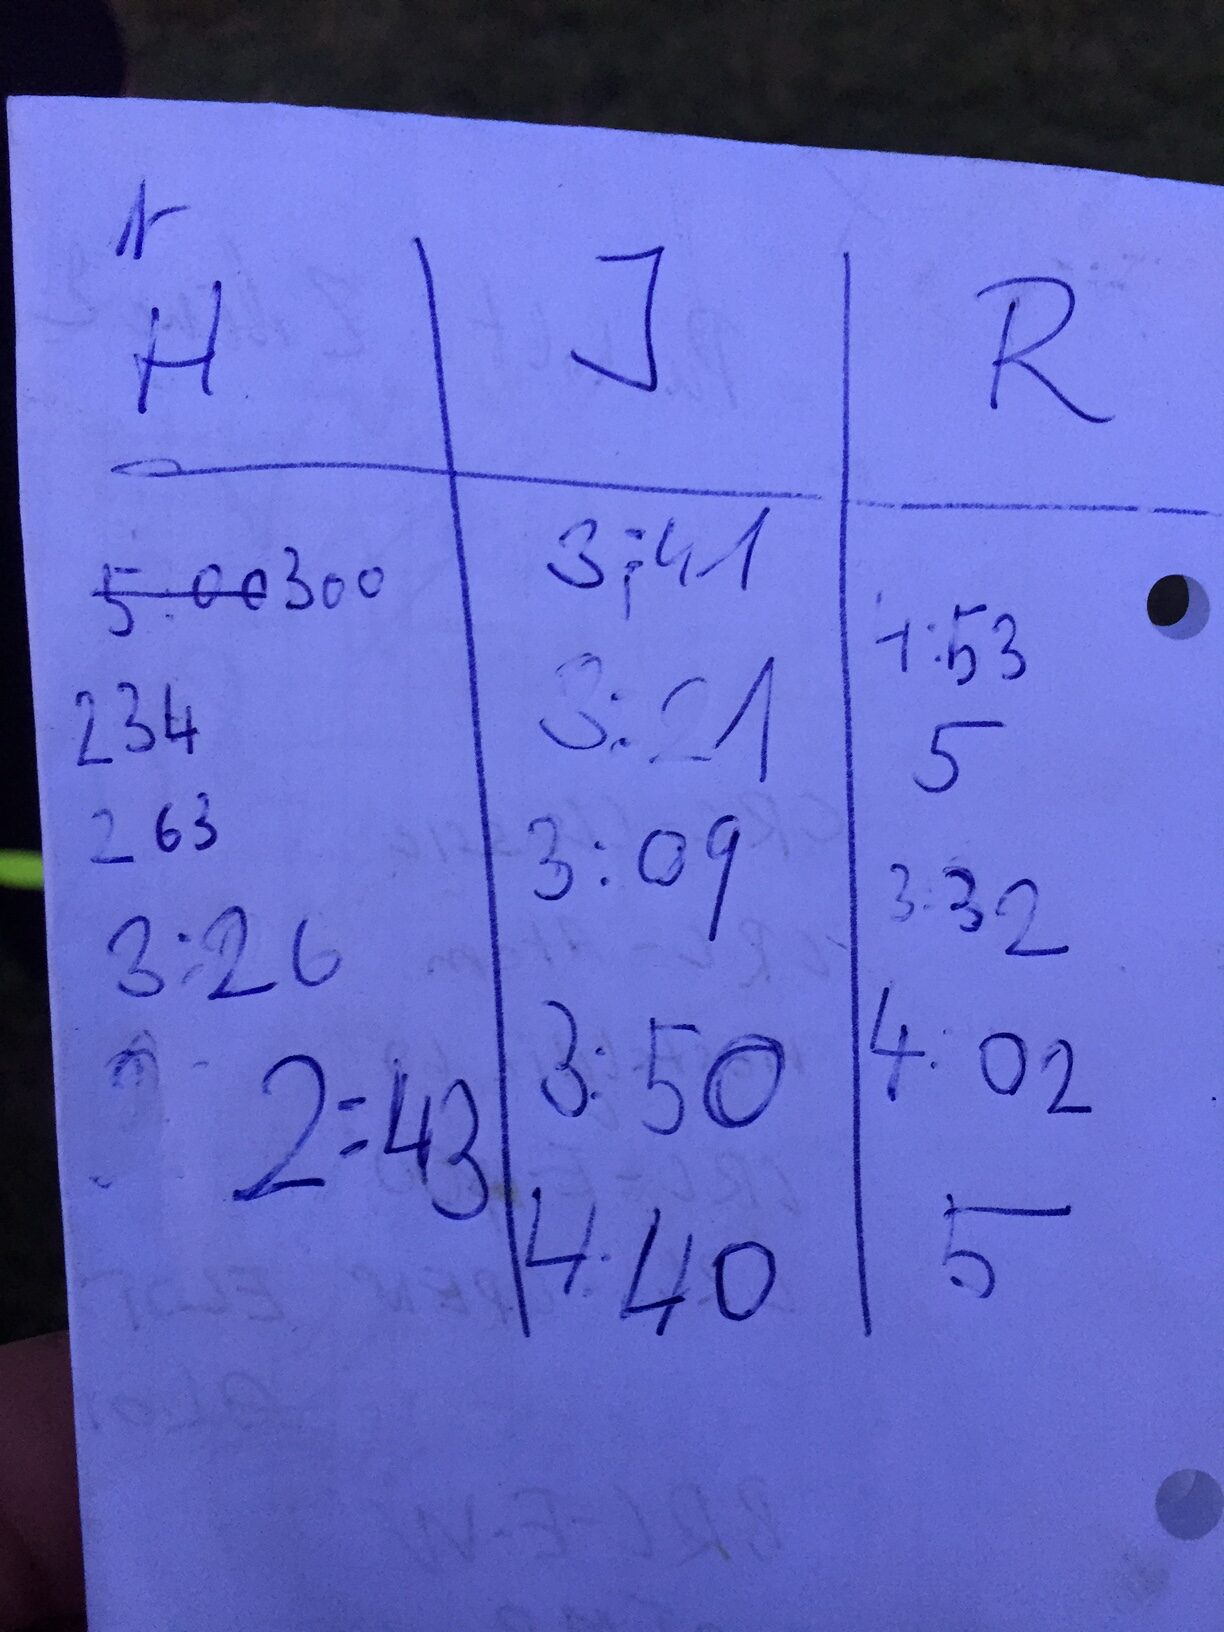 H J R
5:00 300 3:41
1:53
234 3:21
5
263 3:09
3:32
3:26
3:50 4:02
2:43
4:40 5